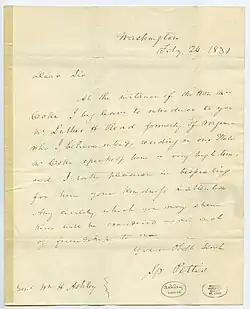 Washington
Feby 24 1831
Dear Sir
At the instance of the Hon Mr
Coke I beg leave to introduce to you
Mr Luther H Read formerly of Virginia
who I believe intends residing in our State
Mr Coke speaks of him in very high terms
and I take pleasure in bespeaking
for him your kindness & attention
Any civility which you may shew
him will be considered as an act
of friendship to me
Your Obdt Servt
Sp. Pettis
Genl Wm H Ashley